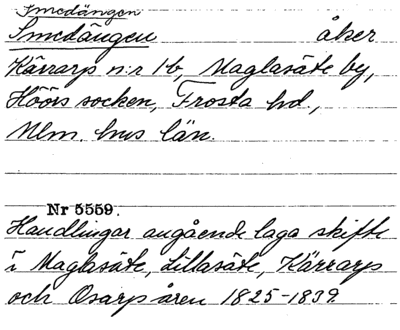 Smedängen
Smedängen åker
Kärrarp n:r 1-b, Maglasäte by,
Höörs socken, Frosta hd.,
Mlm. hus län.
Nr 5559.
Handlingar angående laga skifte
i Maglasäte, Lillasäte, Kärrarp
och Osarp åren 1825-1839.